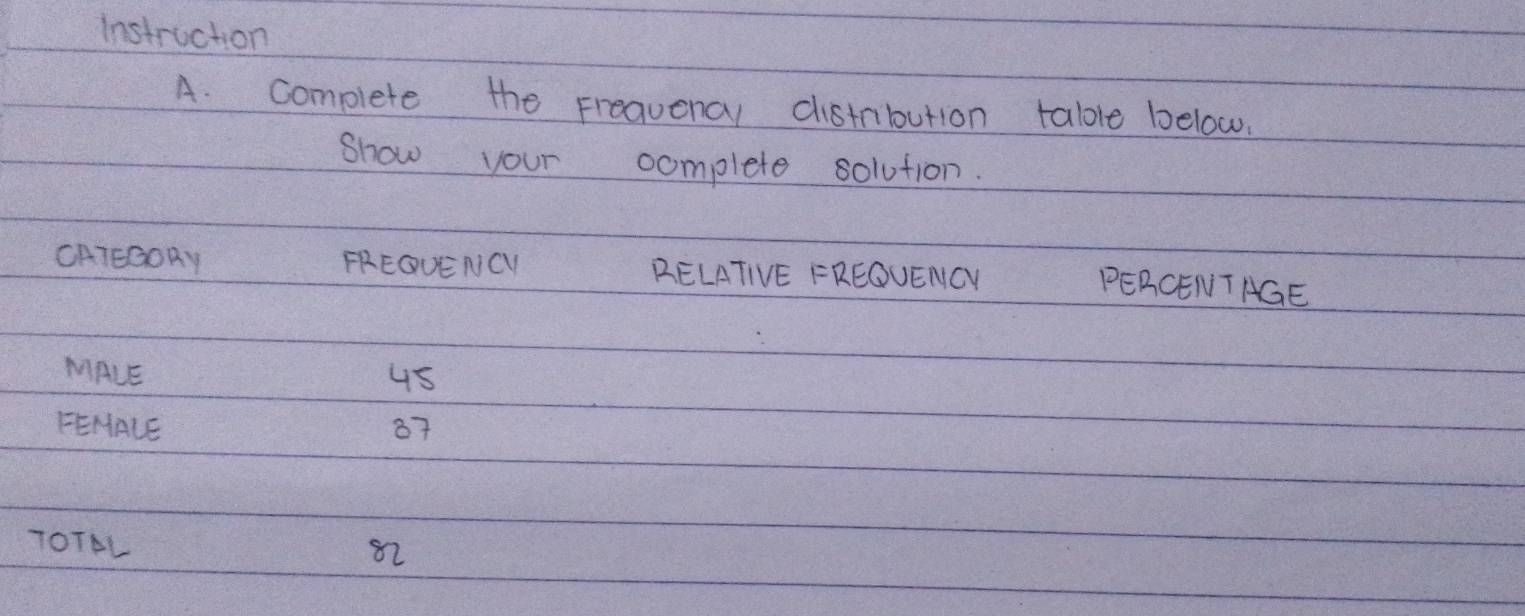 Instruction
A. Complete the Frequency distribution table below.
Show your complete solution.
CATEGORY FREQUENCY RELATIVE FREQUENCY PERCENTAGE
MALE 45
FEMALE 37
TOTAL 82